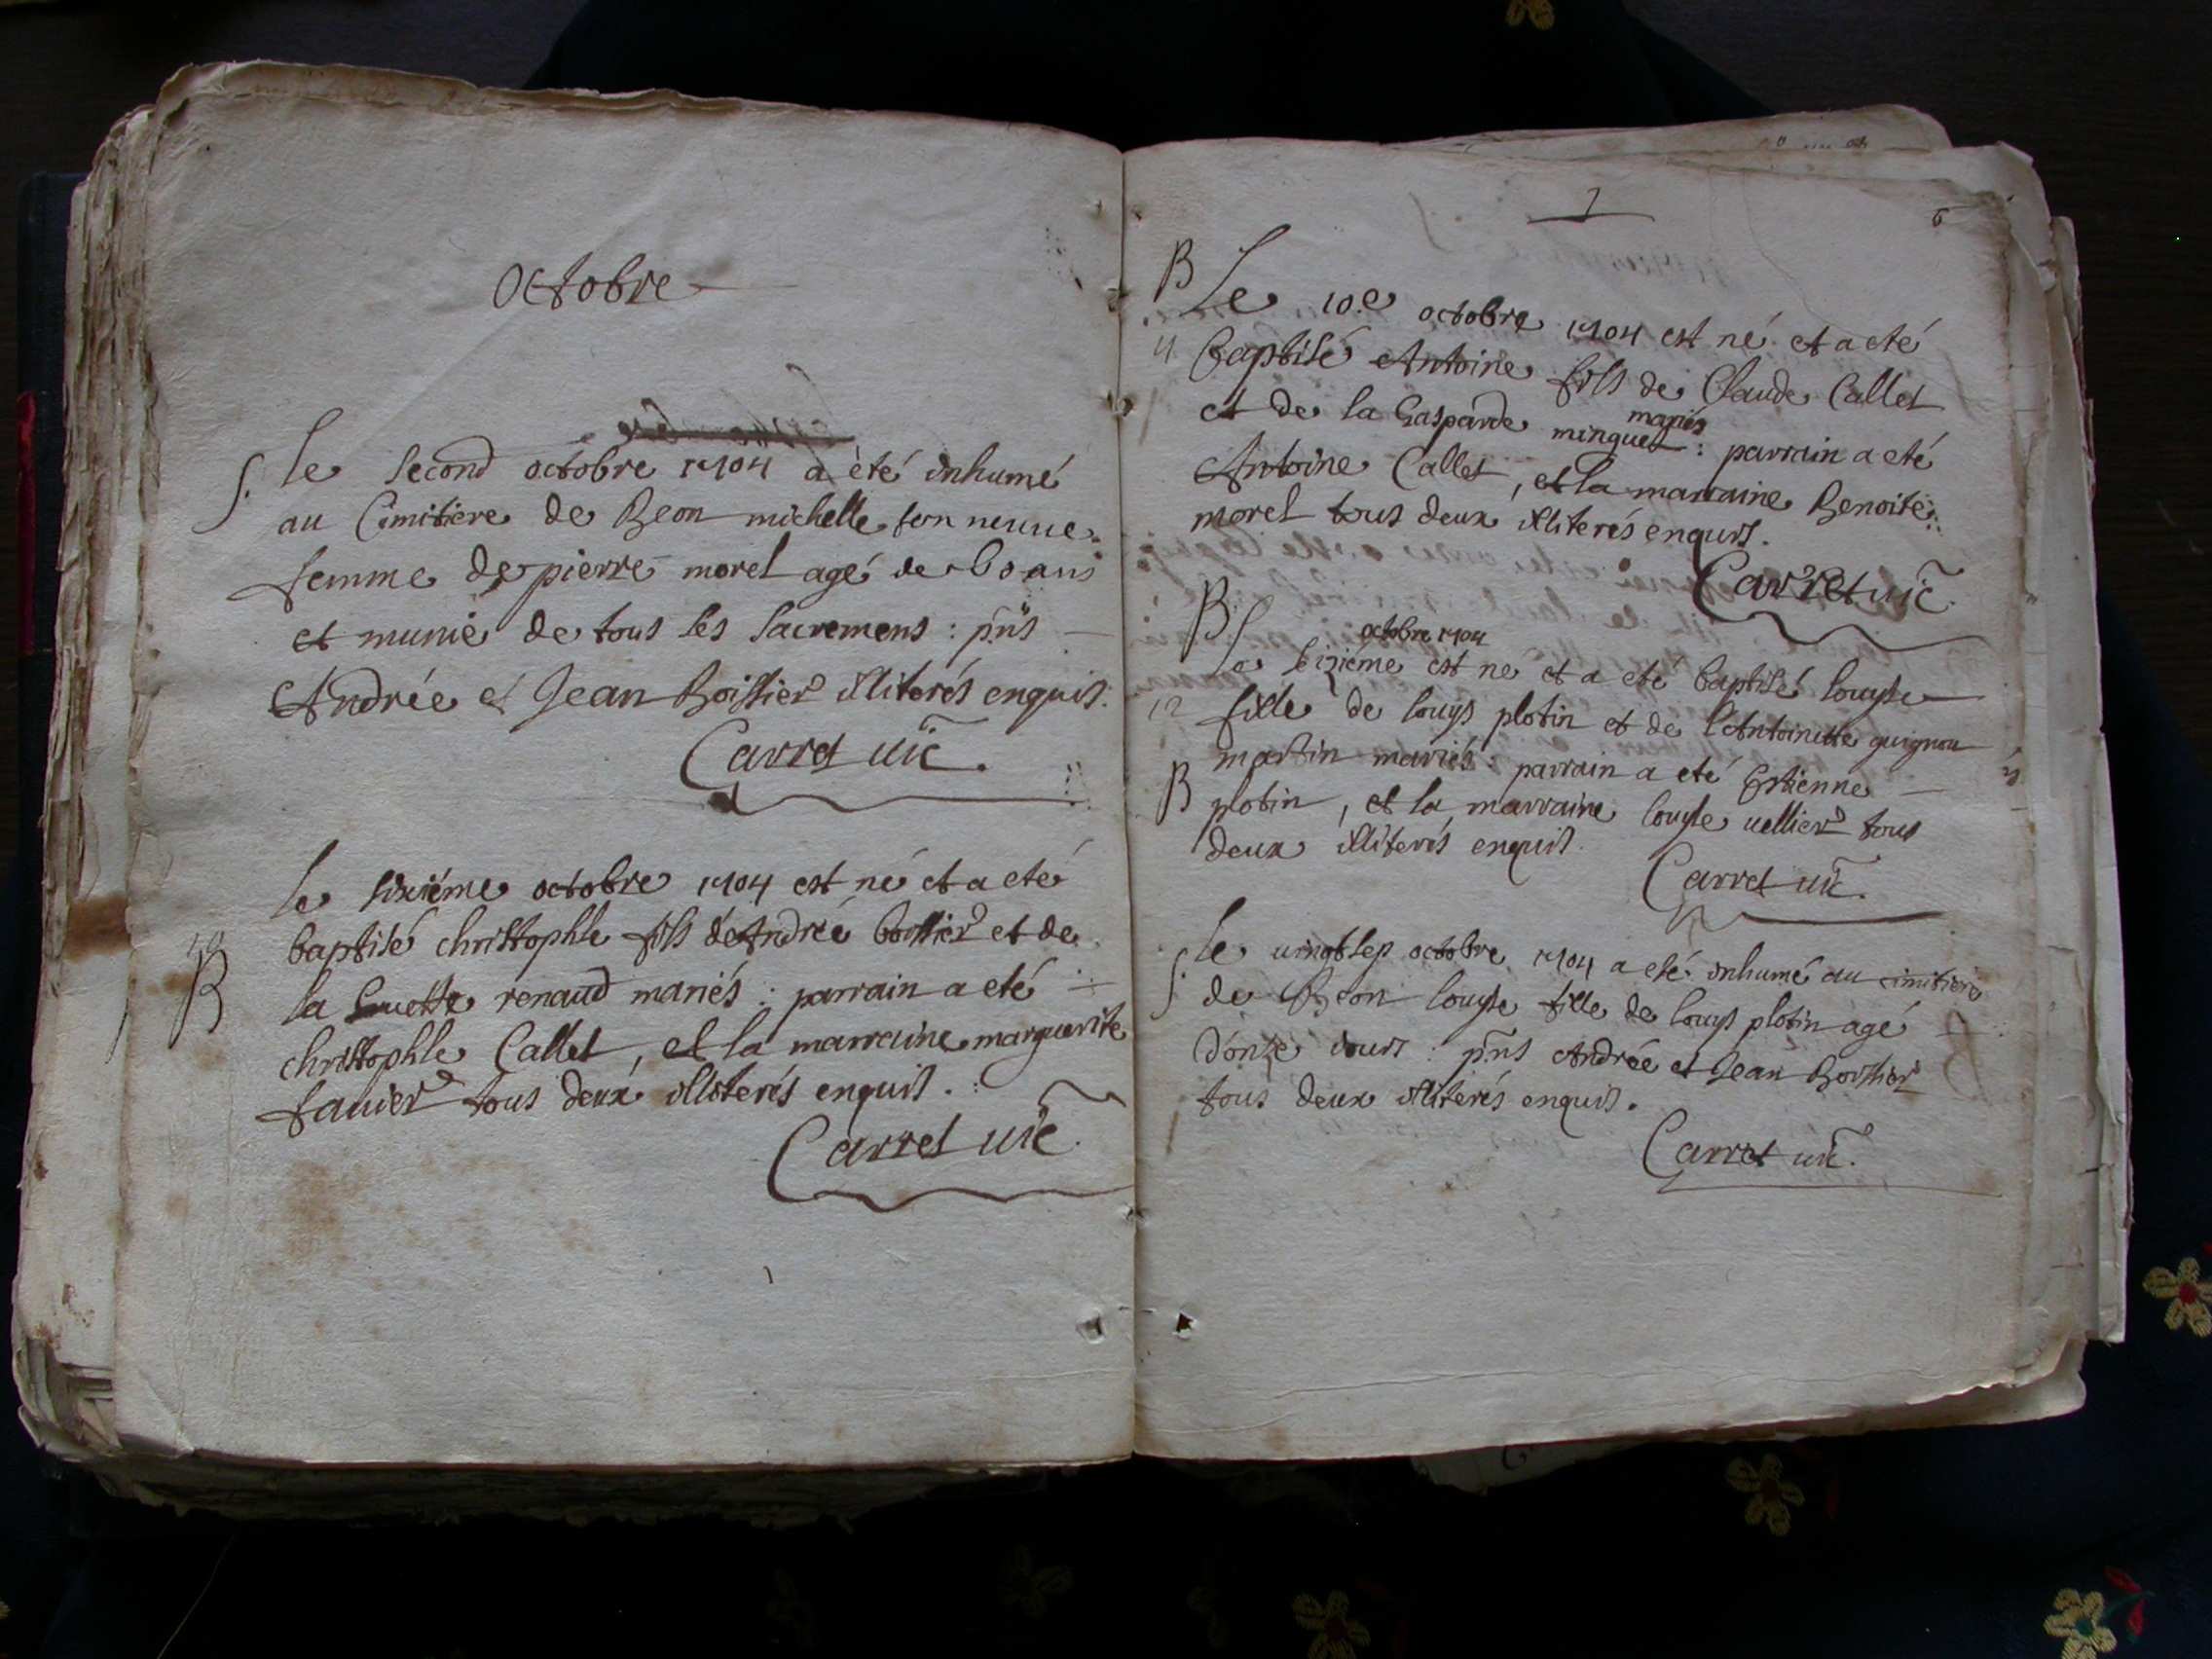 Octobre
S. le second octobre 1704 a été inhumé
au Cimitiere de Beon michelle fen neuue
femme de pierre morel agé de 60 ans
et munie de tous les sacremens : pñs
Andrée et Jean Boissier illiterés enquis.
Carret uic.
le sixiéme octobre 1704 est né et a eté
10 baptisé christophle fils d'Andrée boissier et de
B la renaud mariés : parrain a eté
christophle Callet, et la marraine marguerite
fauier tous deux illiterés enquis.
Carret uic.
7
6
B Le 10.e octobre 1704 est né et a eté
11 baptisé Antoine fils de Claude Callet
et de la Gasparde minguet mariés : parrain a eté
Antoine Callet, et la marraine Benoite
morel tous deux illiterés enquis.
Carret uic.
B Le sixiéme octobre 1704 est né et a eté baptisé louyse
12 fille de louys plotin et de l'Antoinette guignon
martin mariés : parrain a eté Estienne
B plotin, et la marraine louyse uellier tous
deux illiterés enquis.
Carret uic.
S. le uingtsep octobre 1704 a eté inhumé au cimitiere
de Beon louyse fille de louys plotin agé
d'onze iours : pñs Andrée et Jean Boissier
tous deux illiterés enquis.
Carret uic.